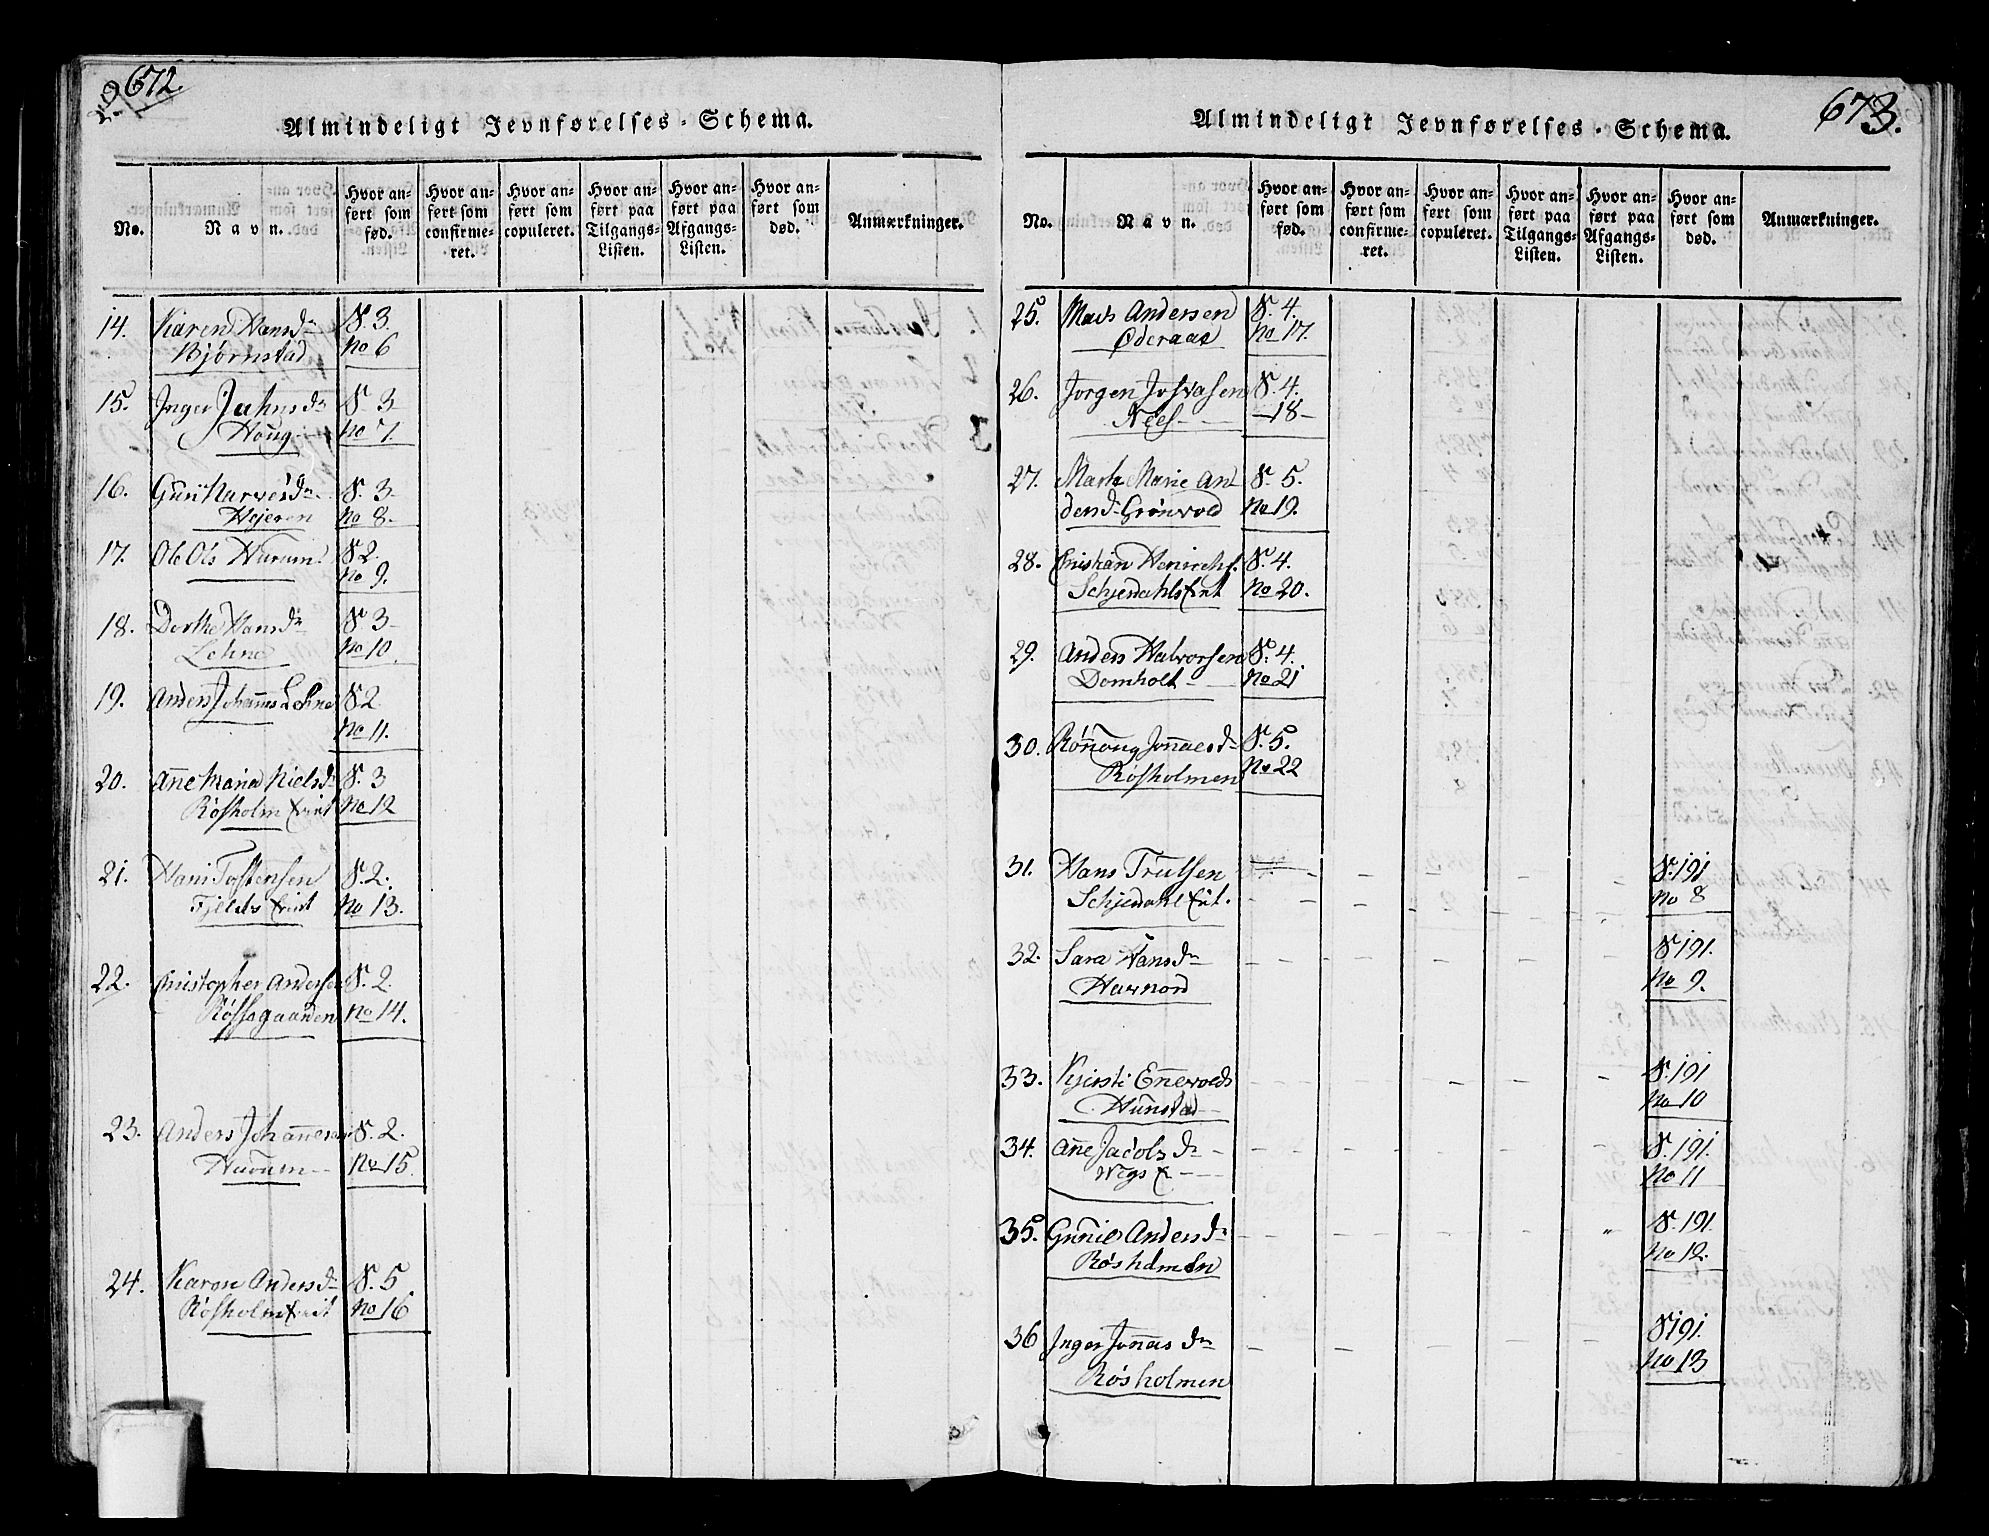 672.
Almindeligt Jevnførelses-Schema.
No.
Navn.
Hvor anført som fød.
Hvor anført som confirmeret.
Hvor anført som copuleret.
Hvor anført paa Tilgangs-Listen.
Hvor anført paa Afgangs-Listen.
Hvor anført som død.
Anmærkninger.
14. Karen Hansdr S. 3.
Bjørnstad No 6
15. Inger Jahnsdr S. 3
Houg No 7.
16. Guri Narvesdr S. 3
Hejeren No 8.
17. Ole Ols Hurum S. 2.
No 9.
18. Dorthe Hansdr S. 3
Lehne No 10.
19. Anders Johannes Lehne S. 2.
No 11.
20. Anne Maria Nielsdr S. 3
Røsholm No 12
21. Hans Tostensen S. 2.
Fjelds No 13.
22. Christopher Andersen S. 2.
Røssegaarden No 14.
23. Anders Johannesen S. 2.
Hurum No 15.
24. Karen Andersdr S. 5
Røsholm No 16
673.
Almindeligt Jevnførelses-Schema.
No.
Navn.
Hvor anført som fød.
Hvor anført som confirmeret.
Hvor anført som copuleret.
Hvor anført paa Tilgangs-Listen.
Hvor anført paa Afgangs-Listen.
Hvor anført som død.
Anmærkninger.
25. Mads Andersen S. 4.
Øderaae No 17.
26. Jørgen Josvasen S. 4.
Nees - 18 -
27. Marte Marie An S. 5.
dersdr Grønvold No 19.
28. Christian Henrichs. S. 4.
Schjedahls No 20.
29. Anders Halvorsen S. 4.
Domholt No 21
30. Rønnoug Jonnaesdr S. 5.
Røsholmen No 22
31. Hans Trulsen S. 191
Schjedahl No 8
32. Sara Hansdr S. 191.
Harnord No 9.
33. Kjersti Enevolds S. 191
Hunstad No 10
34. Anne Jacobsdr S. 191.
Wegs No 11
35. Gunnie Andersdr S. 191.
Røsholmen No 12.
36 Inger Jonnasdr S. 191.
Røsholmen No 13